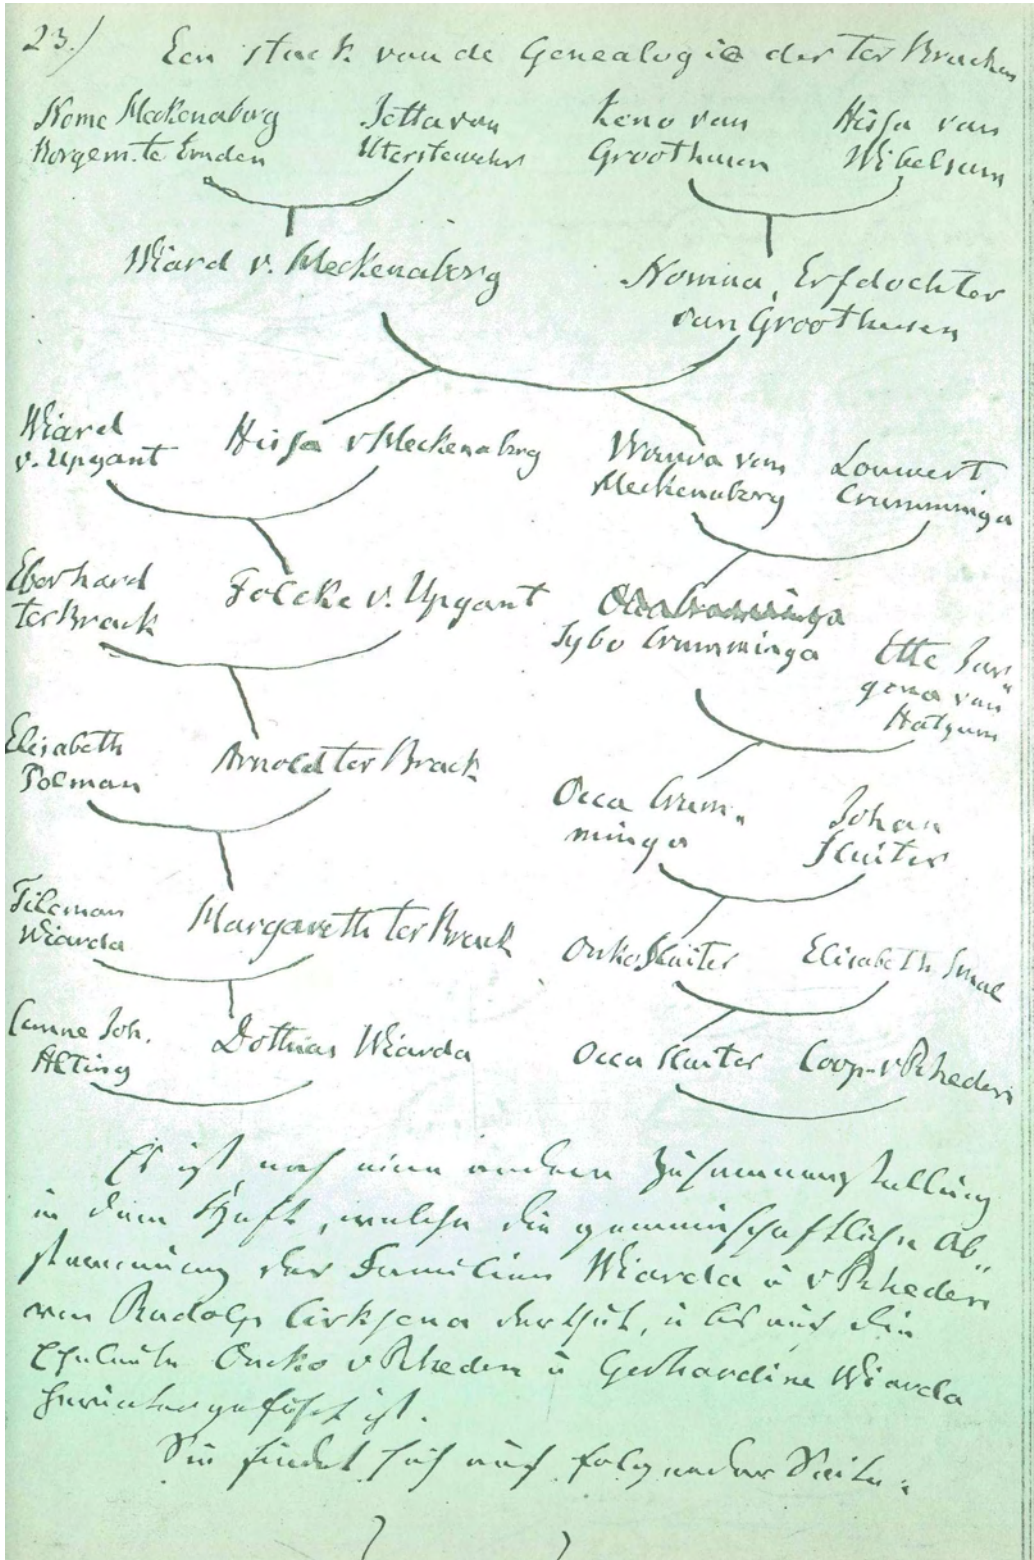 23.)
Een stuck van de Genealogie der ter Bracken
Nome Meckenaborg
Borgem. te Emden
Jetta van
Uterstewehr
Keno van
Groothusen
Hisja van
Wibelsum
Wiard v. Meckenaborg
Nomna, Erfdochter
van Groothusen
Wiard
v. Upgant
Hisja v Meckenabrg
Wauva van
Meckenaborg
Louwert
Crumminga
Eberhard
ter Brack
Folcke v. Upgant
Occa Crumminga
Sybo Crumminga
Ette Jar"
gena van
Hatzum
Elisabeth
Polman
Arnold ter Brack
Occa Crum"
minga
Johan
Sluiter
Tileman
Wiarda
Margareth ter Brack
Onko Sluiter
Elisabeth Smal
Canne Joh.
Alting
Dothias Wiarda
Occa Sluiter
Coop. v Rheden
Es ist noch eine andere Zusammenstellung
in dem Heft, welche die gemeinschaftliche Ab"
stammung der Familien Wiarda u v Rheden
von Rudolp Cirksena derthut, u bis auf die
Eheleute Oncko v Rheden u Gerhardine Wiarda
heruntergeführt ist.
Sie findet sich auf folgender Seite.